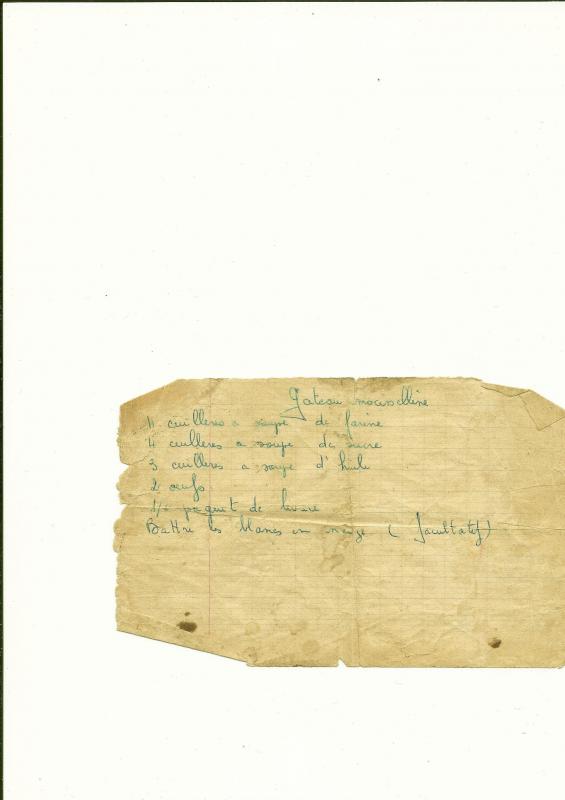 Gateau mousseline
4 cuilleres a soupe de farine
4 cuilleres a soupe de sucre
3 cuilleres a soupe d'huile
2 oeufs
1/2 paquet de levure
Battre les blancs en neige (facultatif)